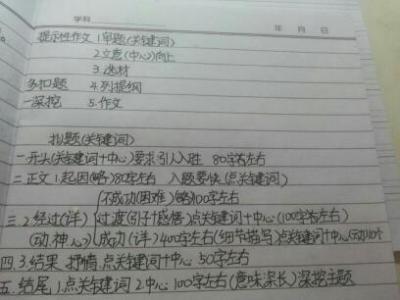 学科
年 月 日
提示性作文 1.审题(关键词)
2.立意(中心)向上
3.选材
多扣题 4.列提纲
一深挖 5.作文
拟题(关键词)
一.开头(关键词+中心)要求引人入胜 80字左右
二.正文 1.起因(略)80字左右 入题要快(点关键词)
不成功(困难)略100字左右
三.2.经过(详) 过渡(引子+感悟)点关键词+中心(100字左右)
(动.神.心) 成功(详)400字左右(细节描写)点关键词+中心
四.3.结果 抒情.点关键词+中心 50字左右
五.结尾 1.点关键词 2.中心 100字左右(意味深长)深挖主题